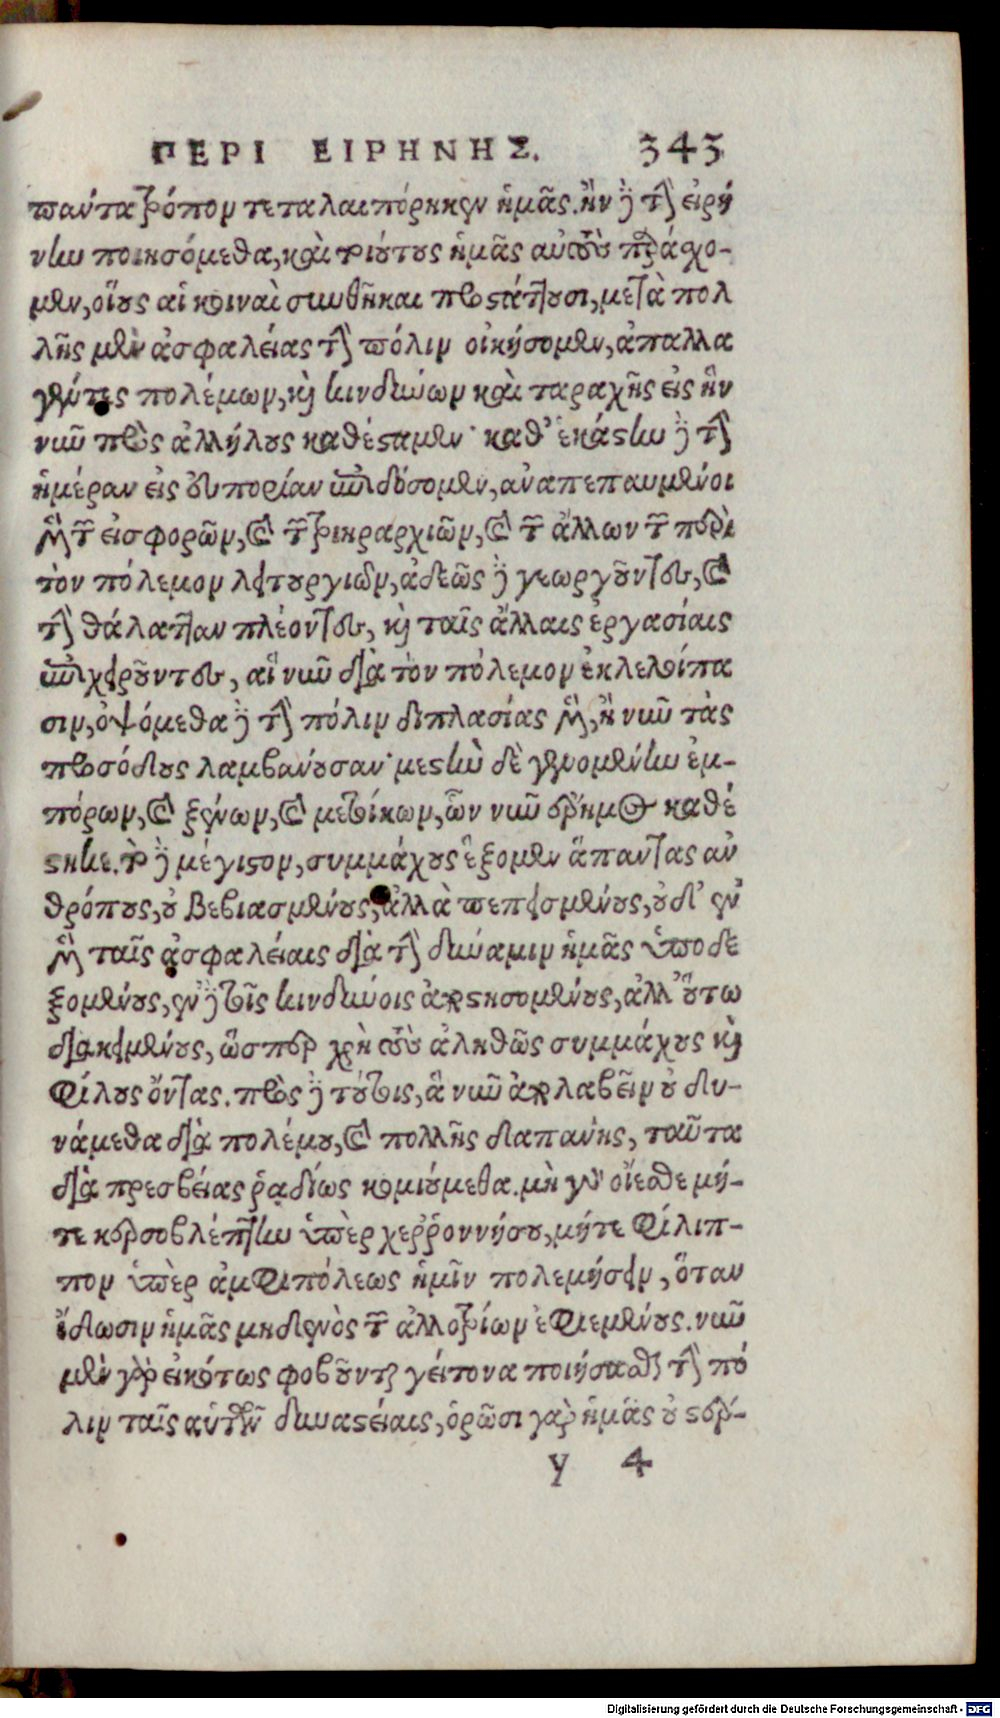 ΠΕΡΙ ΕΙΡΗΝΗΣ. 343
πάντα τρόπον τεταλαιπόρηκεν ἡμᾶς. ἢν δὲ τὴν εἰρή
νην ποιησόμεθα, καὶ τοιούτους ἡμᾶς αὐτοὺς παράσχο-
μεν, οἵους αἱ κοιναὶ συνθῆκαι προστάττουσι, μετὰ πολ
λῆς μὲν ἀσφαλείας τὴν πόλιν οἰκήσομεν, ἀπαλλα
γέντες πολέμων, καὶ κινδύνων καὶ ταραχῆς εἰς ἣν
νῦν πρὸς ἀλλήλους καθέσταμεν· καθ' ἑκάστην δὲ τὴν
ἡμέραν εἰς εὐπορίαν ἐπιδώσομεν, ἀναπεπαυμένοι
μὲν τῶν εἰσφορῶν, καὶ τῶν τριηραρχιῶν, καὶ τῶν ἄλλων τῶν περὶ
τὸν πόλεμον λειτουργιῶν, ἀδεῶς δὲ γεωργοῦντες, καὶ
τὴν θάλατταν πλέοντες, καὶ ταῖς ἄλλαις ἐργασίαις
ἐπιχειροῦντες, αἳ νῦν διὰ τὸν πόλεμον ἐκλελοίπα
σιν, ὀψόμεθα δὲ τὴν πόλιν διπλασίας μὲν, ἢ νῦν τὰς
προσόδους λαμβάνουσαν· μεστὴν δὲ γενομένην ἐμ-
πόρων, καὶ ξένων, καὶ μετοίκων, ὧν νῦν ἔρημος καθέ
στηκε. τὸ δὲ μέγιστον, συμμάχους ἕξομεν ἅπαντας ἀν
θρόπους, οὐ βεβιασμένους, ἀλλὰ πεπεισμένους, οὐδ' ἐν
μὲν ταῖς ἀσφαλείαις διὰ τὴν δύναμιν ἡμᾶς ὑποδε
ξομένους, ἐν δὲ τοῖς κινδύνοις ἀποστησομένους, ἀλλ' οὕτω
διακειμένους, ὥσπερ χρὴ τοὺς ἀληθῶς συμμάχους καὶ
φίλους ὄντας. πρὸς δὲ τούτοις, ἃ νῦν ἀπολαβεῖν οὐ δυ-
νάμεθα διὰ πολέμου, καὶ πολλῆς δαπάνης, ταῦτα
διὰ πρεσβείας ῥᾳδίως κομιούμεθα. μὴ γὰρ οἴεσθε μή-
τε κερσοβλέπτην ὑπὲρ χερρονήσου, μήτε φίλιπ-
πον ὑπὲρ ἀμφιπόλεως ἡμῖν πολεμήσειν, ὅταν
ἴδωσιν ἡμᾶς μηδενὸς τῶν ἀλλοτρίων ἐφιεμένους. νῦν
μὲν γὰρ εἰκότως φοβοῦνται γείτονα ποιήσασθαι τὴν πό
λιν ταῖς αὑτῶν δυναστείαις, ὁρῶσι γὰρ ἡμᾶς οὐ στέρ-
y 4
Digitalisierung gefördert durch die Deutsche Forschungsgemeinschaft - DFG